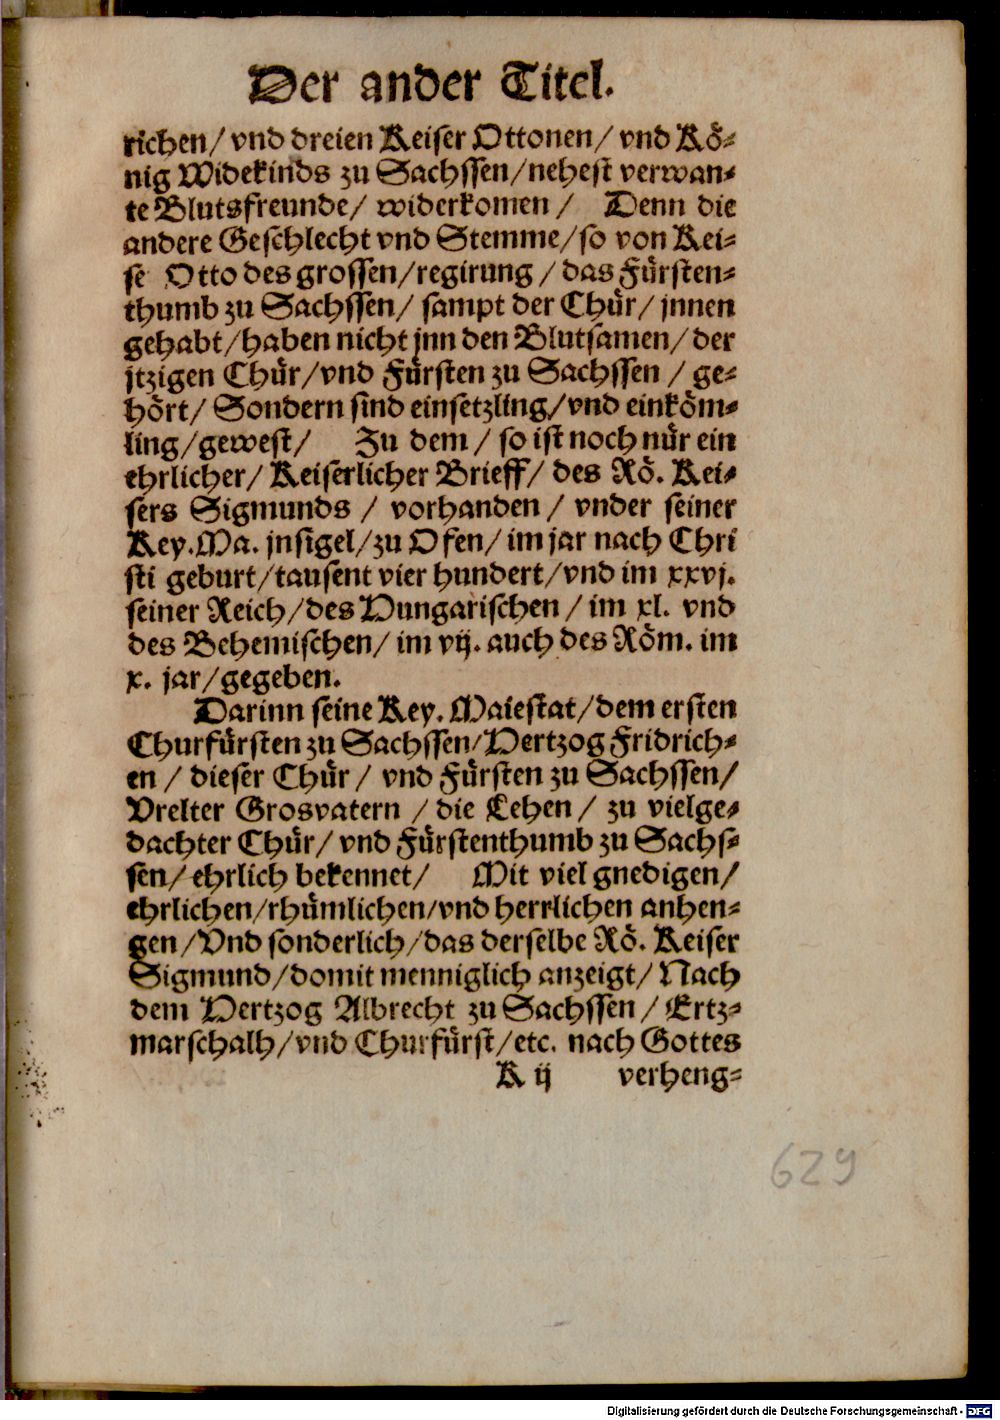 Der ander Titel.
richen/ vnd dreien Keiser Ottonen/ vnd Kö-
nig Widekinds zu Sachssen/nehest verwan-
te Blutsfreunde/ widerkomen / Denn die
andere Geschlecht vnd Stemme/so von Kei-
se Otto des grossen/regirung /das Fürsten-
thumb zu Sachssen/ sampt der Chür/ jnnen
gehabt/haben nicht jnn den Blutsamen/ der
jtzigen Chür/vnd Fürsten zu Sachssen / ge-
hört/ Sondern sind einsetzling/vnd einköm-
ling/gewest/ Zu dem / so ist noch nür ein
ehrlicher/ Keiserlicher Brieff/ des Rö. Kei-
sers Sigmunds / vorhanden / vnder seiner
Key.Ma. jnsigel/zu Ofen/ im jar nach Chri
sti geburt/tausent vier hundert/vnd im xxvj.
seiner Reich/des Hungarischen / im xl. vnd
des Behemischen/ im vij. auch des Röm. im
x. jar/gegeben.
Darinn seine Key. Maiestat/dem ersten
Churfürsten zu Sachssen/Hertzog Fridrich-
en / dieser Chür / vnd Fürsten zu Sachssen/
Vrelter Grosvatern / die Lehen / zu vielge-
dachter Chür/ vnd Fürstenthumb zu Sachs-
sen/ ehrlich bekennet/ Mit viel gnedigen/
ehrlichen/rhümlichen/vnd herrlichen anhen-
gen/Vnd sonderlich/das derselbe Rö. Keiser
Sigmund/domit menniglich anzeigt/ Nach
dem Hertzog Albrecht zu Sachssen/ Ertz-
marschalh/vnd Churfürst/etc. nach Gottes
K ij verheng-
629
Digitalisierung gefördert durch die Deutsche Forschungsgemeinschaft - DFG